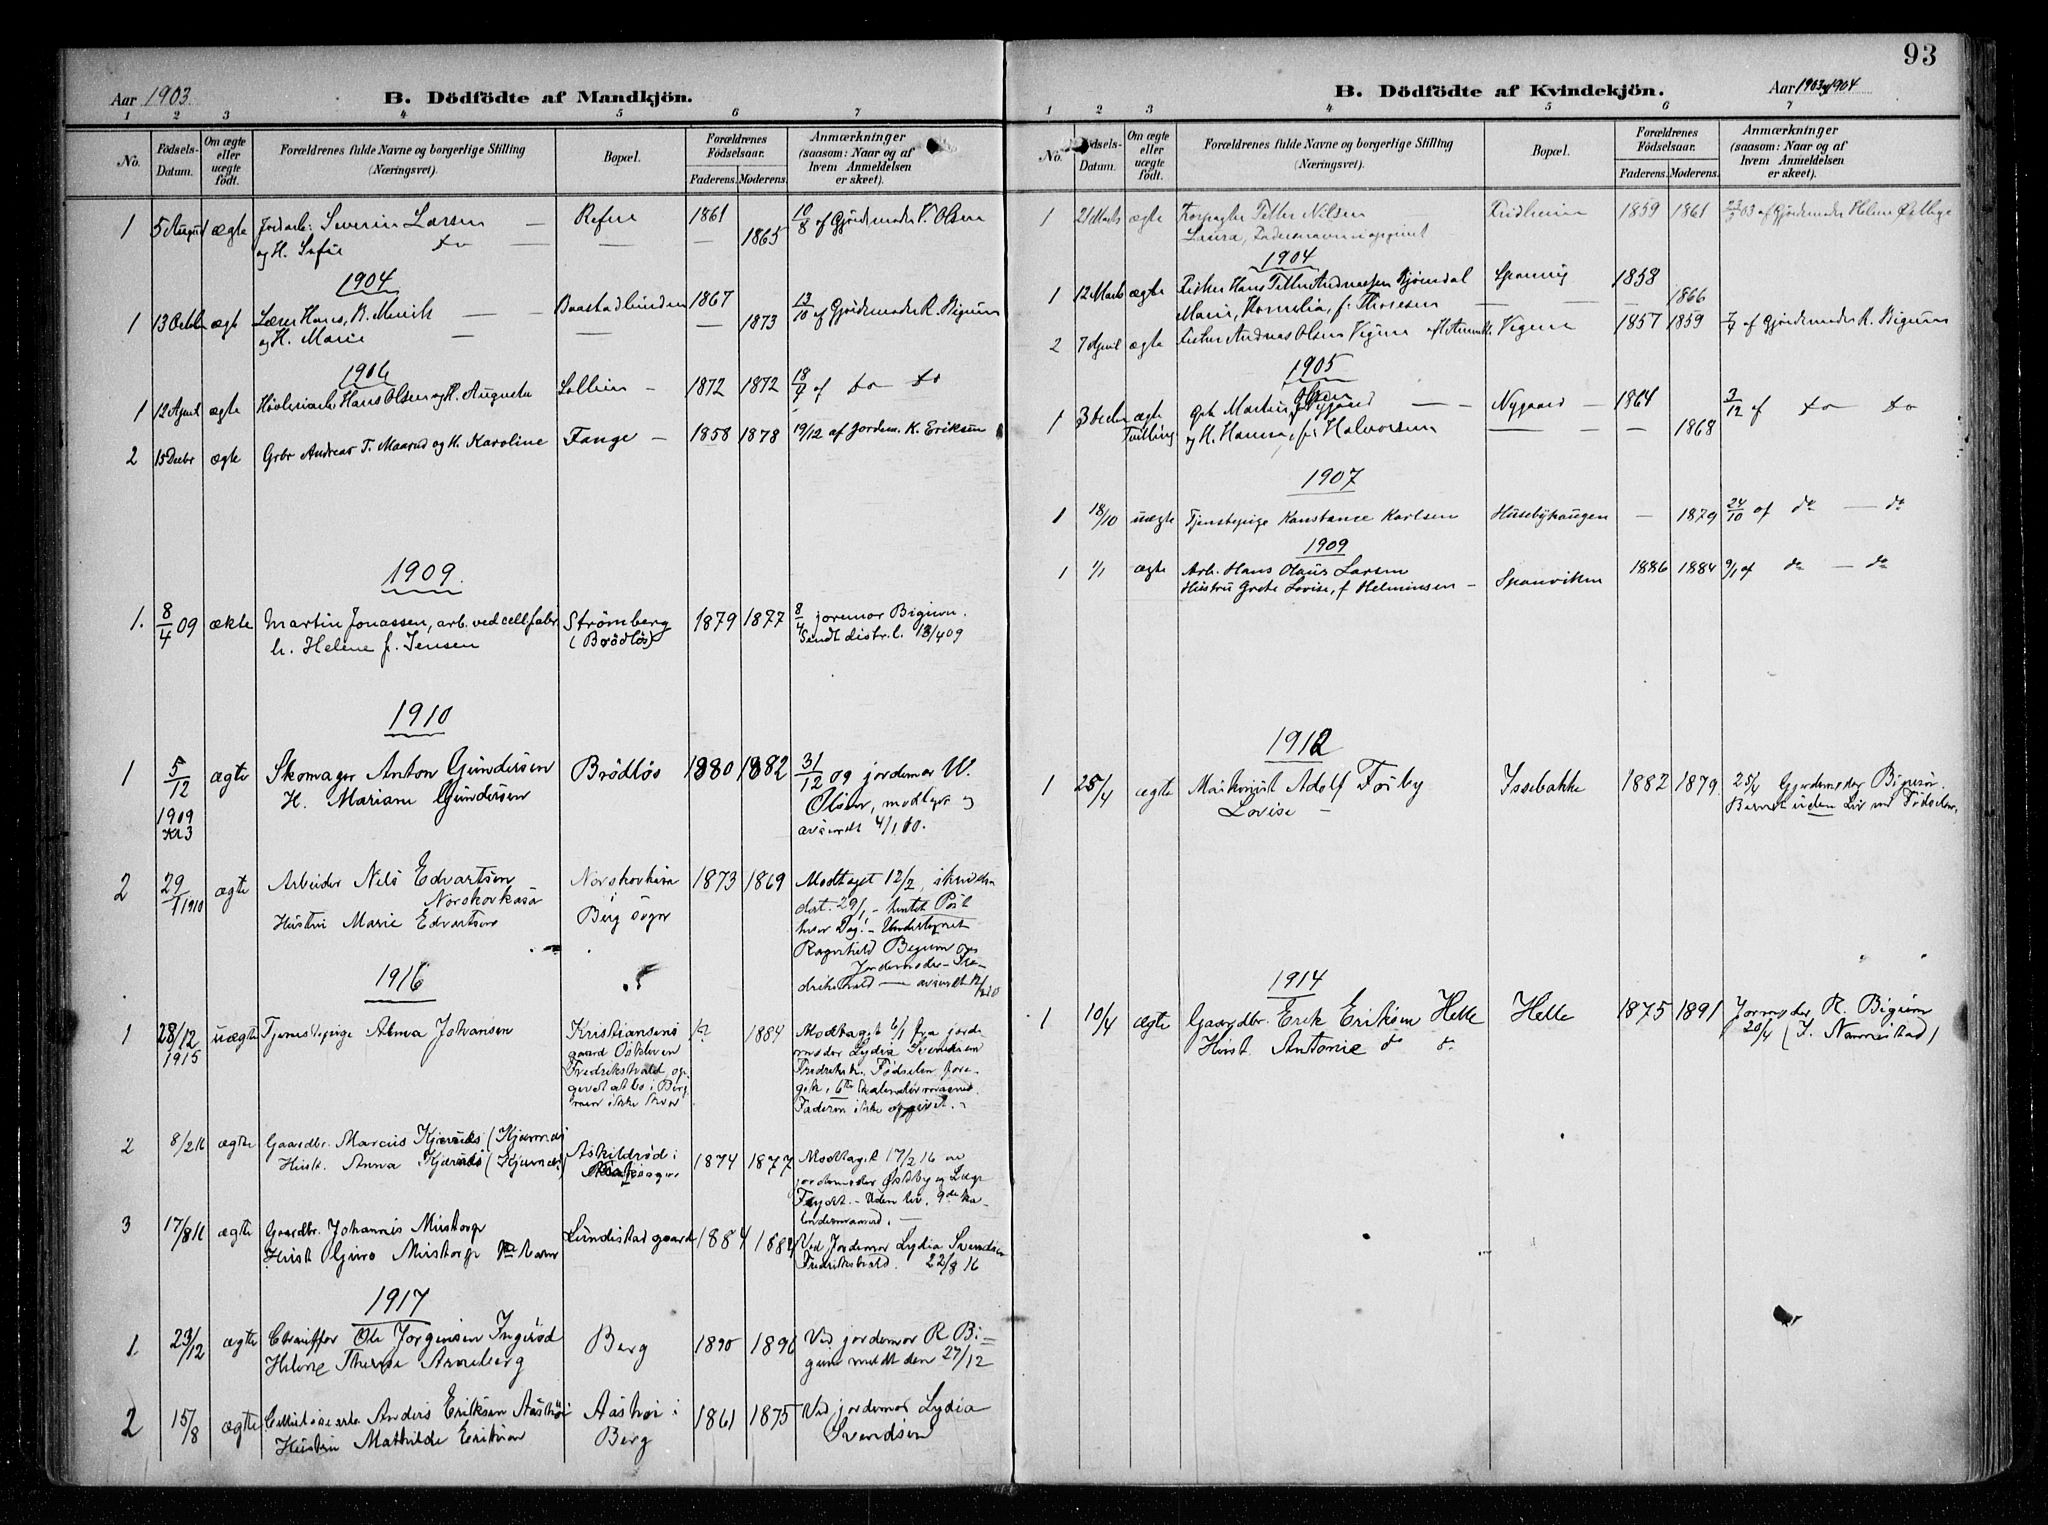 93
Aar 1903.
B. Dödfödte af Mandkjön.
1 2 3 4 5 6 7
No.
Födsels-Datum.
Om ægte eller uægte födt.
Forældrenes fulde Navne og borgerlige Stilling (Næringsvei).
Bopæl.
Forældrenes Födselsaar.
Faderens. Moderens.
Anmærkninger (saasom: Naar og af hvem Anmeldelsen er skeet).
1 5 August ægte Severin Larsen — Refne 1861 10/8 af Gjordemoder Olsen
og H. Sofie do — — 1865
1904
1 13 Octbr ægte Lærer Hans, B. — Baastadlunden 1867 13/10 af Gjordemoder R. Bigum
og H. Marie — — — 1873
1906
1 12 April ægte Hans Olsen og H. Augusta — 1872 1872 18/4 af do do
2 15 Decbr ægte Gbr Andreas T. Maarud og H. Karoline Tange — 1858 1878 19/12 af Jordem. K. Eriksen
1909.
1. 8/4 09 ækte Martin Jonassen, arb. ved cellfabr. Strømberg 1879 1877 8/4 joremor Bigum.
h. Helene f. Jensen (Brödløs) Sendt distr.l. 13/4 09
1910
1 5/12 ægte Skomager Anton Gundersen Brödløs 1880 1882 31/12 09 jordemor W.
H. Mariane Gundersen Olsen, modtget og
1909
Kl 3 avsendt 4/1 10.
2 29/1 1910 ægte Arbeider Nils Edvartsen 1873 1869 Modtaget 12/2,
Norskovkasa
Hustru Marie Edvartsen Berg sogn dat. 29/1 – hentet Post
hver Dag! – Undertegnet
Ragnhild Bigum
Jordemoder – Fre-
drikshald — avsendt 12/2 10
1916
1 28/12 uægte Tjenestepige Alma Johansen Kristiansens 1884 Modtaget 6/1 fra jorde
1915 gaard moder Lydia Svendsen
Fredrikshald, op- Fredriksh. Födselen fore-
givet at bo i Berg gik i 6te Kalendermaaned.
men ikke Faderen ikke opgivet. –
2 8/2 16 ægte Gaardbr. Marcus Kjærnes (Kjernes) Askildrød i 1874 1877 Modtaget 17/2 16 av
Hust. Anna Kjærnes (Kjernes) jordemoder Østby og Læge
– Uden liv. 9de ka-
lendermaaned. —
3 17/8 16 ægte Gaardbr. Johannis Lundestad gaard 1884 1884 Ved Jordemor Lydia Svendsen
Hust Guro Fredrikshald. 22/8 16
1917
1. 23/12 ægte Chauffør Ole Jorgensen Ingerød Berg 1890 1896 Ved jordemor R Bi-
Helene Therese Anneberg gum meldt den 27/12
2 15/8 ægte Anders Eriksen Aashøi Aashøi i 1861 1875 Ved jordemor Lydia
Hustru Mathilde Eriksen Berg Svendsen
B. Dödfödte af Kvindekjön.
Aar 1903 og 1904
1 2 3 4 5 6 7
No.
Födsels-Datum.
Om ægte eller uægte födt.
Forældrenes fulde Navne og borgerlige Stilling (Næringsvei).
Bopæl.
Forældrenes Födselsaar.
Faderens. Moderens.
Anmærkninger (saasom: Naar og af hvem Anmeldelsen er skeet).
1 21 Marts ægte Petter Nilsen — Fridheim 1859 1861 03 af Gjordemoder Helene
Laura, Fadersnavn ei opgivet
1904
1 12 Marts ægte Fisker Hans Petter Andreasen Bjørndal Sponvig 1858
Marie, Kornelia, f. Thoresen — — — 1866
2 7 April ægte Fisker Andreas Olsen Vigene Vigene 1857 1859 7/4 af Gjordemoder R. Bigum
1905
Olsen
1 3 Decbr ægte Gbr Martin Nygaard — Nygaard — 1864 3/12 af do do
Tvilling og H. Hanna, f. Halvorsen — — 1868
1907
1 18/10 uægte Tjenstepige Konstance Karlsen Husebyhaugen — 1879 24/10 af do — do
1909
1 1/1 ægte Arb. Hans Olaus Larsen 1886 1884 9/1 af do — do
Hustru Grete Lovise, f Helminsen – Sponviken
1912
1 25/4 ægte Maskinist Adolf Fosby Issebakke 1882 1879. 25/4 Gjordemoder Bigum.
Lovise — Barnet uden Liv ved Fødselen.
1914
1 10/4 ægte Gaardbr. Erik Eriksen Helle Helle 1875 1891 Jormoder R. Bigum
Hust. Antonie do do 20/4 (J. Nannestad)